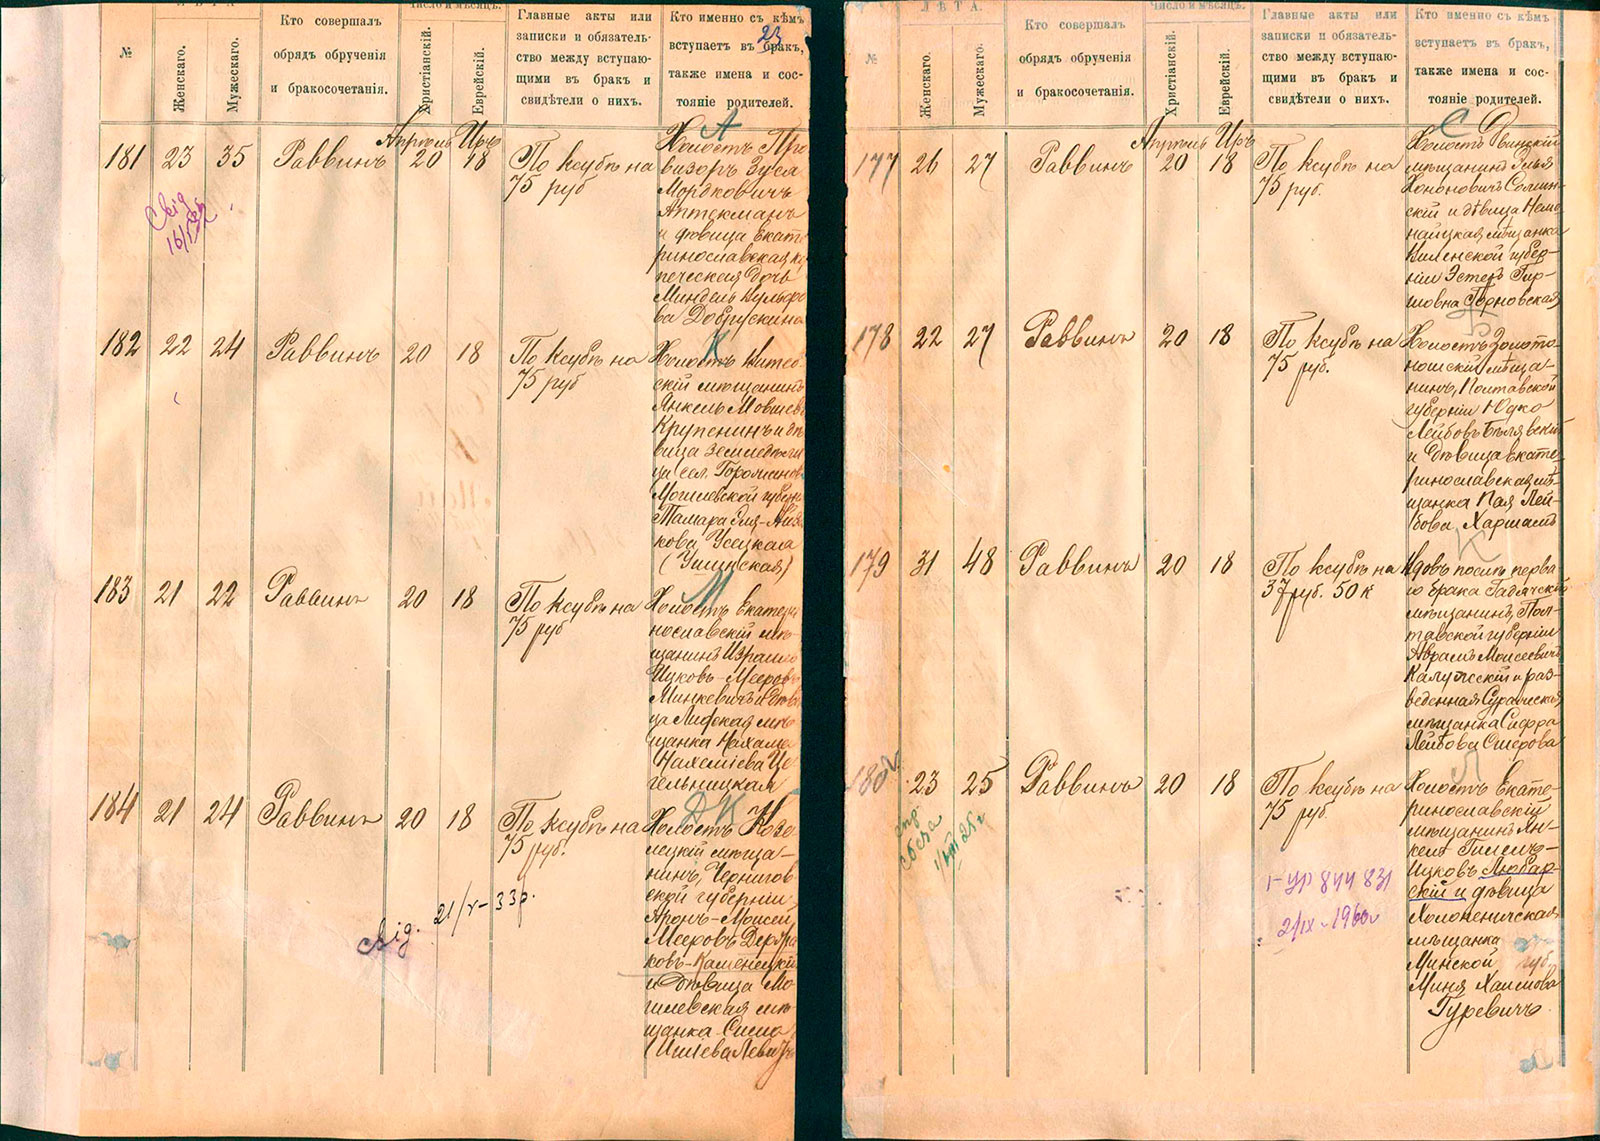 ЛѢТА.
№
Женскаго.
Мужескаго.
Кто совершалъ
обрядъ обрученія
и бракосочетанія.
Число и мѣсяцъ.
Христіанскій.
Еврейскій.
Главные акты или
записки и обязатель-
ство между вступаю-
щими въ бракъ и
свидѣтели о нихъ.
Кто именно съ кѣмъ
вступаетъ въ бракъ,
также имена и сос-
тояніе родителей.
23
А
181 23 35 Раввинъ
Апрѣль Иръ
20 18
По ксубѣ на
75 руб
Холостъ Про
визоръ Зуся
Мордковичъ
Аптекманъ
и дѣвица Екате
ринославская ку
печеская дочь
Миндель Вульфо
ва Добрускина
182 22 24 Раввинъ 20 18
По ксубѣ на
75 руб
К
Холостъ Витеб
скій мѣщанинъ
Янкель Мовшевъ
Крупенинъ и дѣ
вица
Могилевской губерн
Тамара
кова Усецкая
183 21 22 Раввинъ 20 18
По ксубѣ на
75 руб
М
Холостъ Екатери
нославскій мѣ
щанинъ Израиль
Ицковъ-Мееровъ
Минкевичъ и дѣви
ца мѣ
щанка Нахама
Нахеміева Це
гельницкая
184 21 24 Раввинъ 20 18
По ксубѣ на
75 руб.
ДК
Холостъ Козе
лецкій мѣща-
нинъ, Чернигов
ской губерніи
Аронъ-Моисей
Мееровъ
ковъ-Каменецкій
и дѣвица Мо
гилевская мѣ
щанка Сима
21/V-33г.
ЛѢТА.
№
Женскаго.
Мужескаго.
Кто совершалъ
обрядъ обрученія
и бракосочетанія.
Число и мѣсяцъ.
Христіанскій.
Еврейскій.
Главные акты или
записки и обязатель-
ство между вступаю-
щими въ бракъ и
свидѣтели о нихъ.
Кто именно съ кѣмъ
вступаетъ въ бракъ,
также имена и сос-
тояніе родителей.
С
177 26 27 Раввинъ
Апрѣль Иръ
20 18
По ксубѣ на
75 руб.
Холостъ Двинскій
мѣщанинъ Илья
Хононовичъ Солин-
скій и дѣвица Немо
найцкая мѣщанка
Виленской губер-
ніи Эстеръ Гир-
шовна Горновская
178 22 27 Раввинъ 20 18
По ксубѣ на
75 руб.
Б
Холостъ Золото
ношскій мѣща-
нинъ, Полтавской
губерніи Юдко
Лейбовъ Бѣлявскій
и дѣвица Екате
ринославская мѣ
щанка Пая Лей-
бова Харшатъ
179 31 48 Раввинъ 20 18
По ксубѣ на
37 руб. 50 к
К
Вдовъ послѣ перва
го брака Гадячскій
мѣщанинъ, Пол-
тавской губерніи
Аврамъ Моисеевичъ
Калужскій и раз-
веденная Суражская
мѣщанка Сифра
Лейбова
180 23 25 Раввинъ 20 18
По ксубѣ на
75 руб.
Л
Холостъ Екате-
ринославскій
мѣщанинъ Ян-
кель Гилель-
Ицковъ Любар-
скій и дѣвица
Холопеничская
мѣщанка
Минской губ.
Миня Хаимова
Гуревичъ
2/IX-1960г